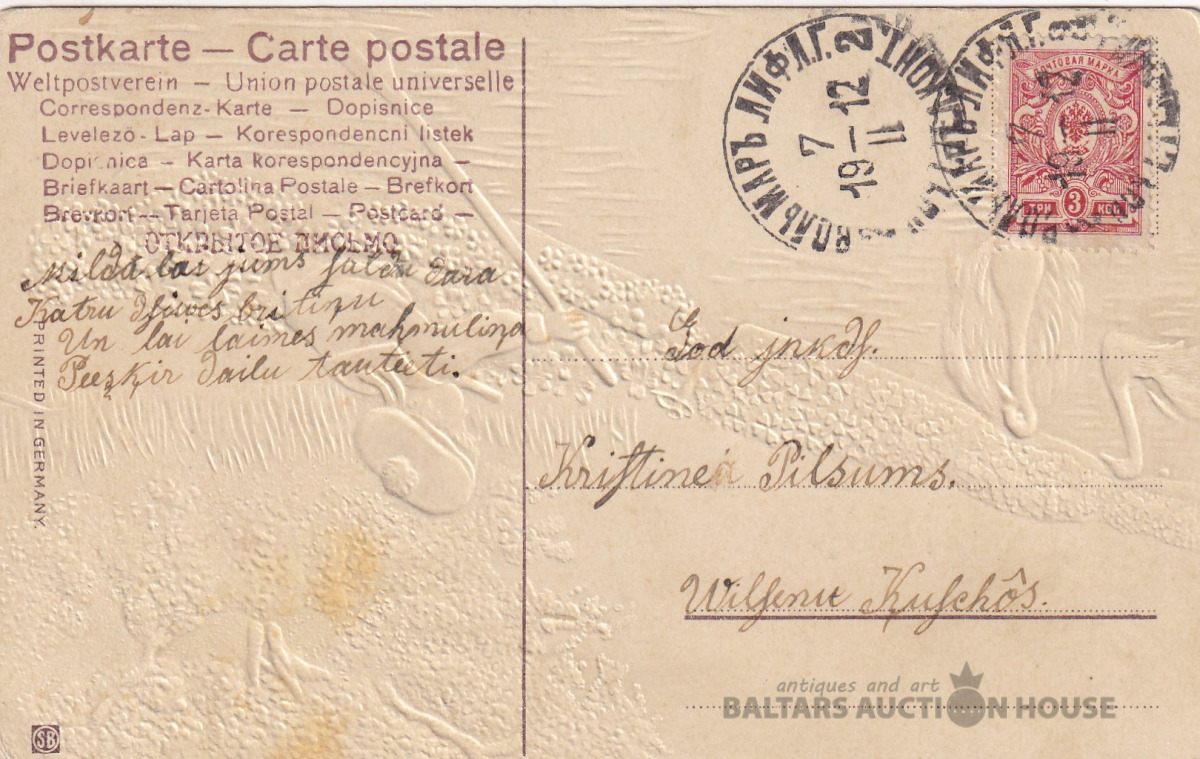 Postkarte — Carte postale
Weltpostverein — Union postale universelle
Correspondenz-Karte — Dopisnice
Levelező-Lap — Korespondencni listek
Dopisnica — Karta korespondencyjna —
Briefkaart — Cartolina Postale — Brefkort
Brevkort — Tarjeta Postal — Postcard —
ОТКРЫТОЕ ПИСЬМО
Milda lai jums saldu dara
Katru dſiwes britiņu
Un lai laimes mahmuliņa
Peeşķir dailu tauteeti.
PRINTED IN GERMANY.
SB
ВОЛЬМАРЪ ЛИФЛ.Г.
7
19 — 12
11
2
ПОЧТОВАЯ МАРКА
ТРИ 3 КОП
God jnkdſ.
Kriſtine Pilsums.
Wilſenu Kuſchôs.
antiques and art
BALTARS AUCTION HOUSE